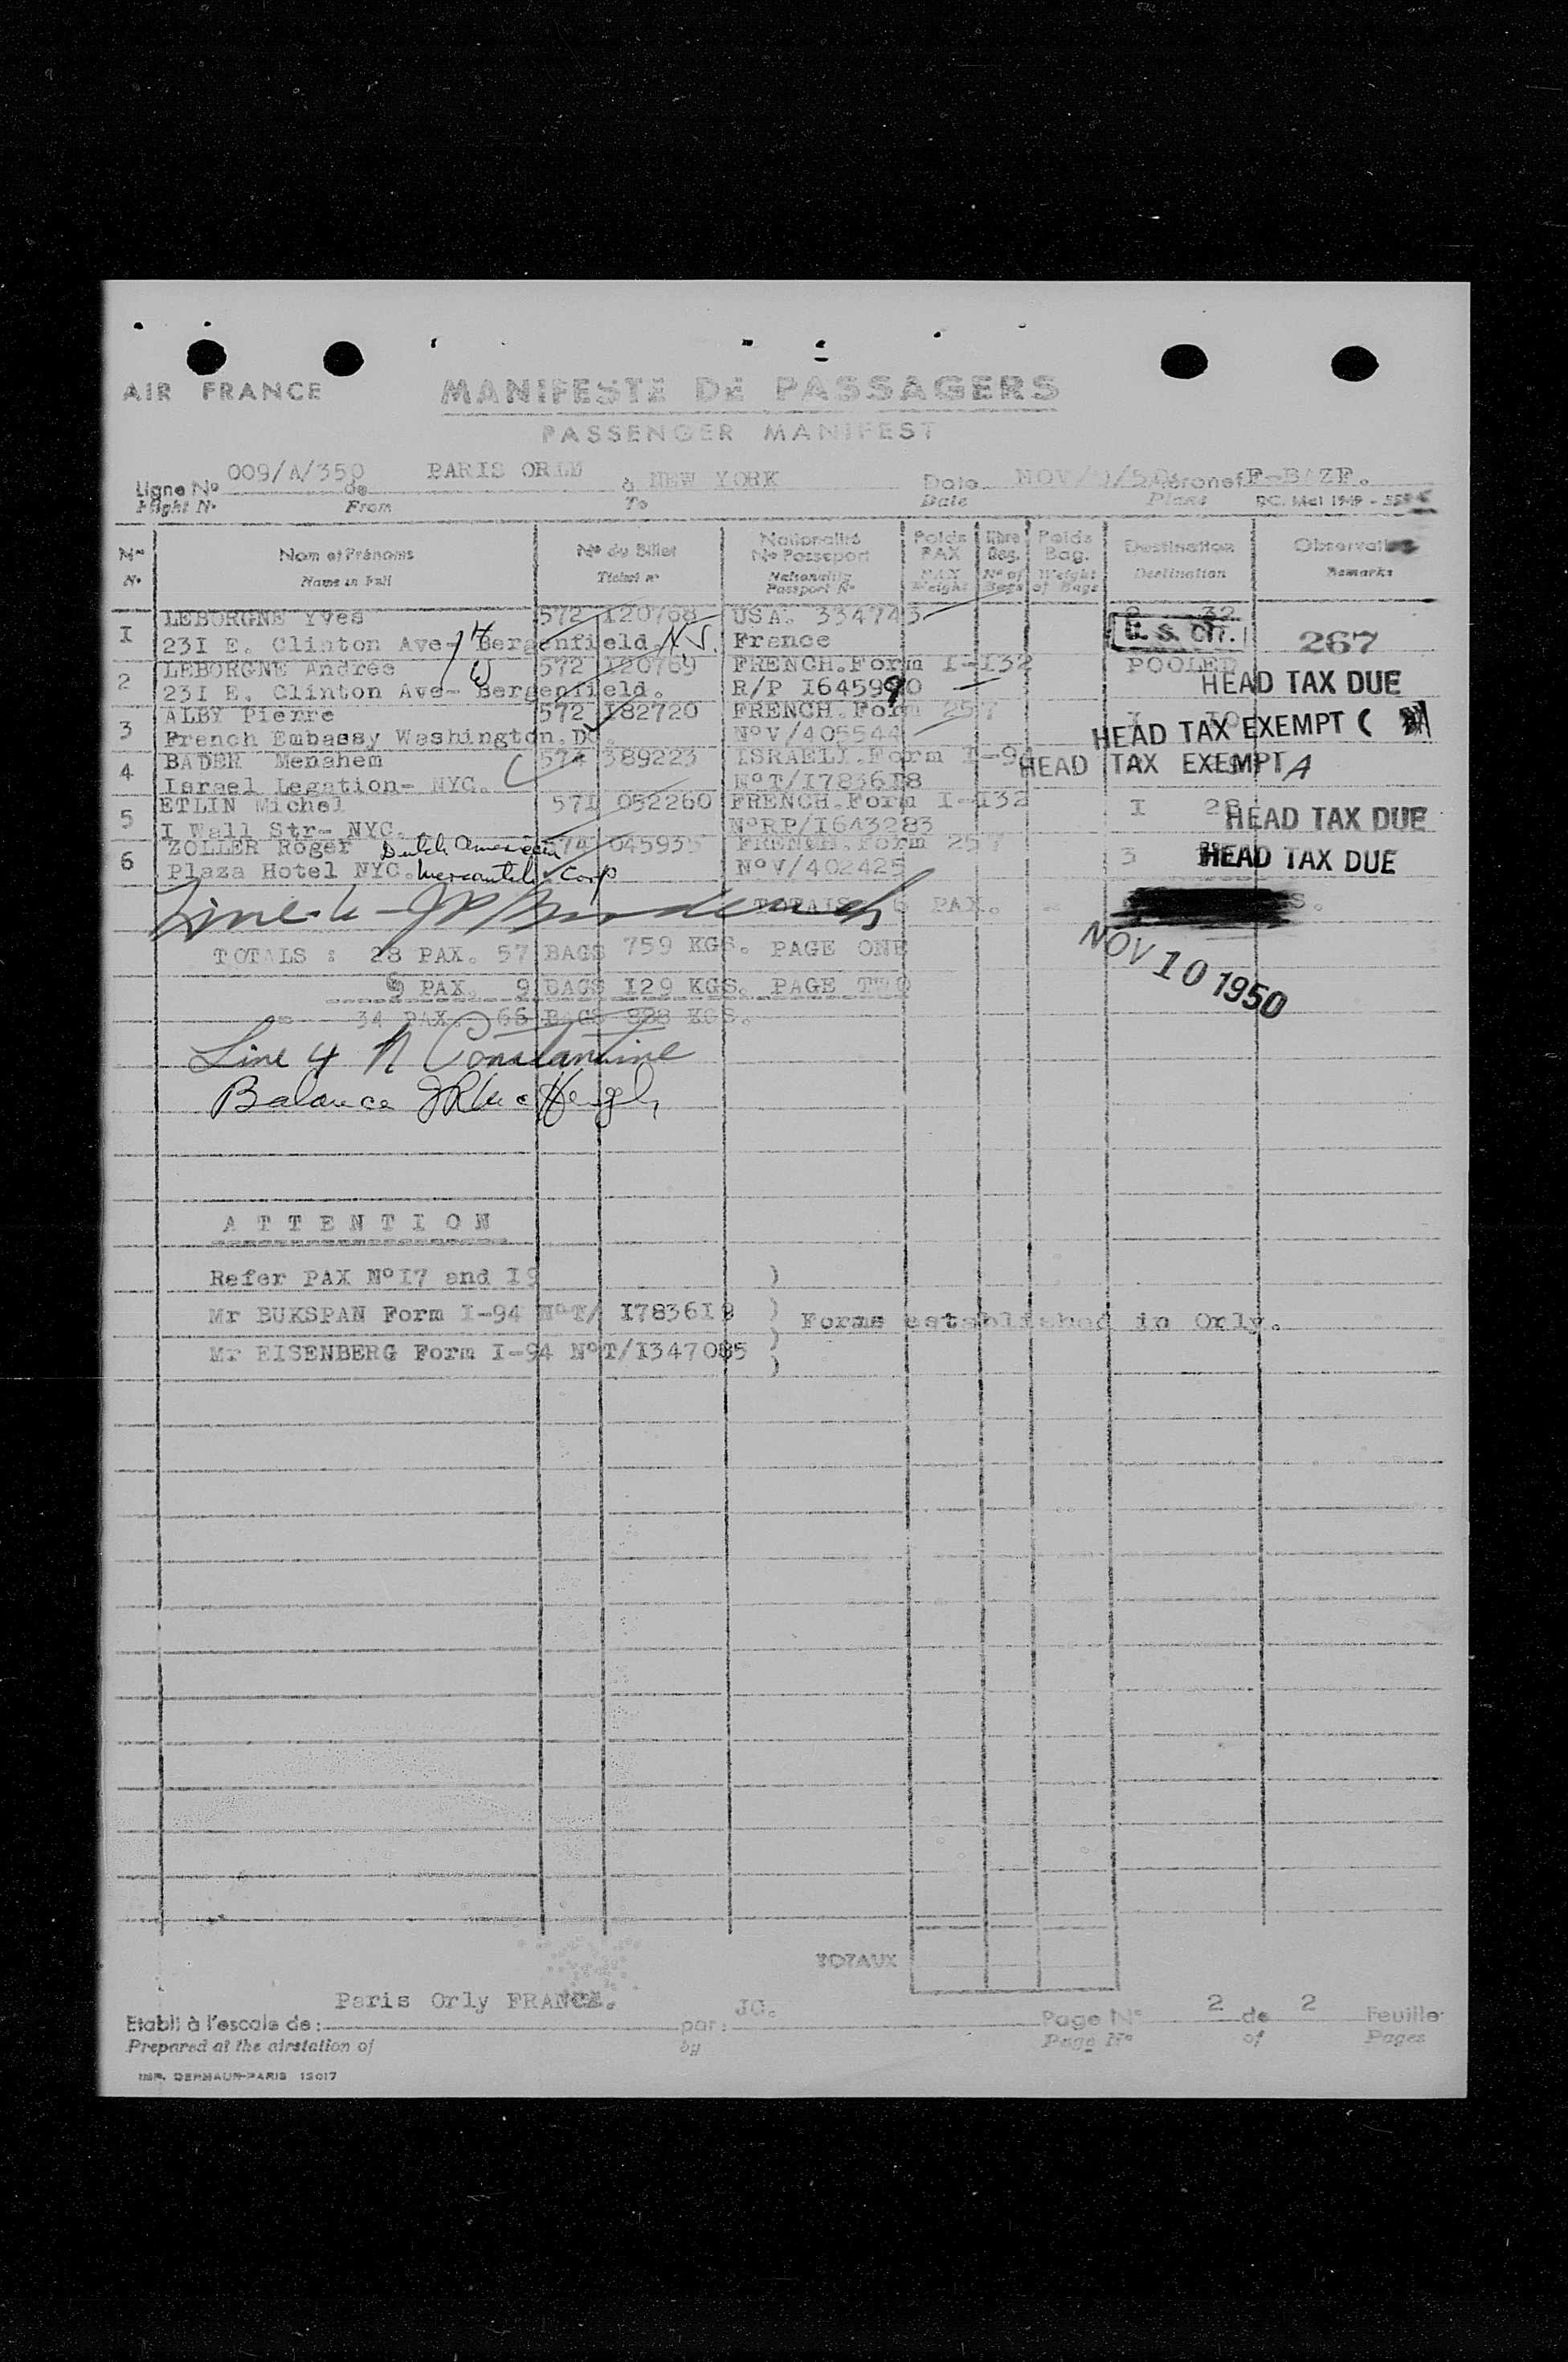 AIR FRANCE
MANIFESTE DE PASSAGERS
PASSENGER MANIFEST
Ligne Nº 009/A/350 de PARIS ORLY à NEW YORK Date NOV/ /50 Aéronef F-BAZF.
Flight Nº From To Date Plane RC. Mai 1949 -
Nº Nom et Prénoms Nº du Billet Nationalité Nº Passeport Poids PAX Nbre Bag. Poids Bag. Destination Observations
Nº Name in Full Ticket nº Nationality Passport Nº PAX Weight Nº of Bags Weight of Bags Destination Remarks
I LEBORGNE Yves 572 120768 USA. 334743 2 32
23I E. Clinton Ave- Bergenfield. N.J. France U. S. CIT. 267
2 LEBORGNE Andrée 572 120769 FRENCH.Form I-I32 POOLED
23I E. Clinton Ave- Bergenfield. R/P I645990 HEAD TAX DUE
3 ALBY Pierre 572 182720 FRENCH.Form 257
French Embassy Washington.DC. NºV/405544 HEAD TAX EXEMPT (
4 BADER Menahem 574 389223 ISRAELI.Form I-94
Israel Legation- NYC. NºT/I7836I8 HEAD TAX EXEMPT A
5 ETLIN Michel 571 052260 FRENCH.Form I-I32 I 28
I Wall Str- NYC. NºRP/I643283 HEAD TAX DUE
6 ZOLLER Roger Dutch American 574 045935 FRENCH.Form 257 3
Plaza Hotel NYC. Mercantile Corp NºV/402425 HEAD TAX DUE
TOTALS 6 PAX.
TOTALS : 28 PAX. 57 BAGS 759 KGS. PAGE ONE
PAX. 9 BAGS I29 KGS. PAGE TWO
= 34 PAX. 66 BAGS 888 KGS.
NOV 10 1950
Line 4 N Constantine
Balance
A T T E N T I O N
Refer PAX NºI7 and I9 )
Mr BUKSPAN Form I-94 NºT/ I7836I9 ) Forms established in Orly.
)
Mr EISENBERG Form I-94 NºT/I347085 )
TOTAUX
Etabli à l'escale de : Paris Orly FRANCE. par : JC. Page Nº 2 de 2 Feuille
Prepared at the airstation of by Page Nº of Pages
IMP. DERMAUR-PARIS 12017